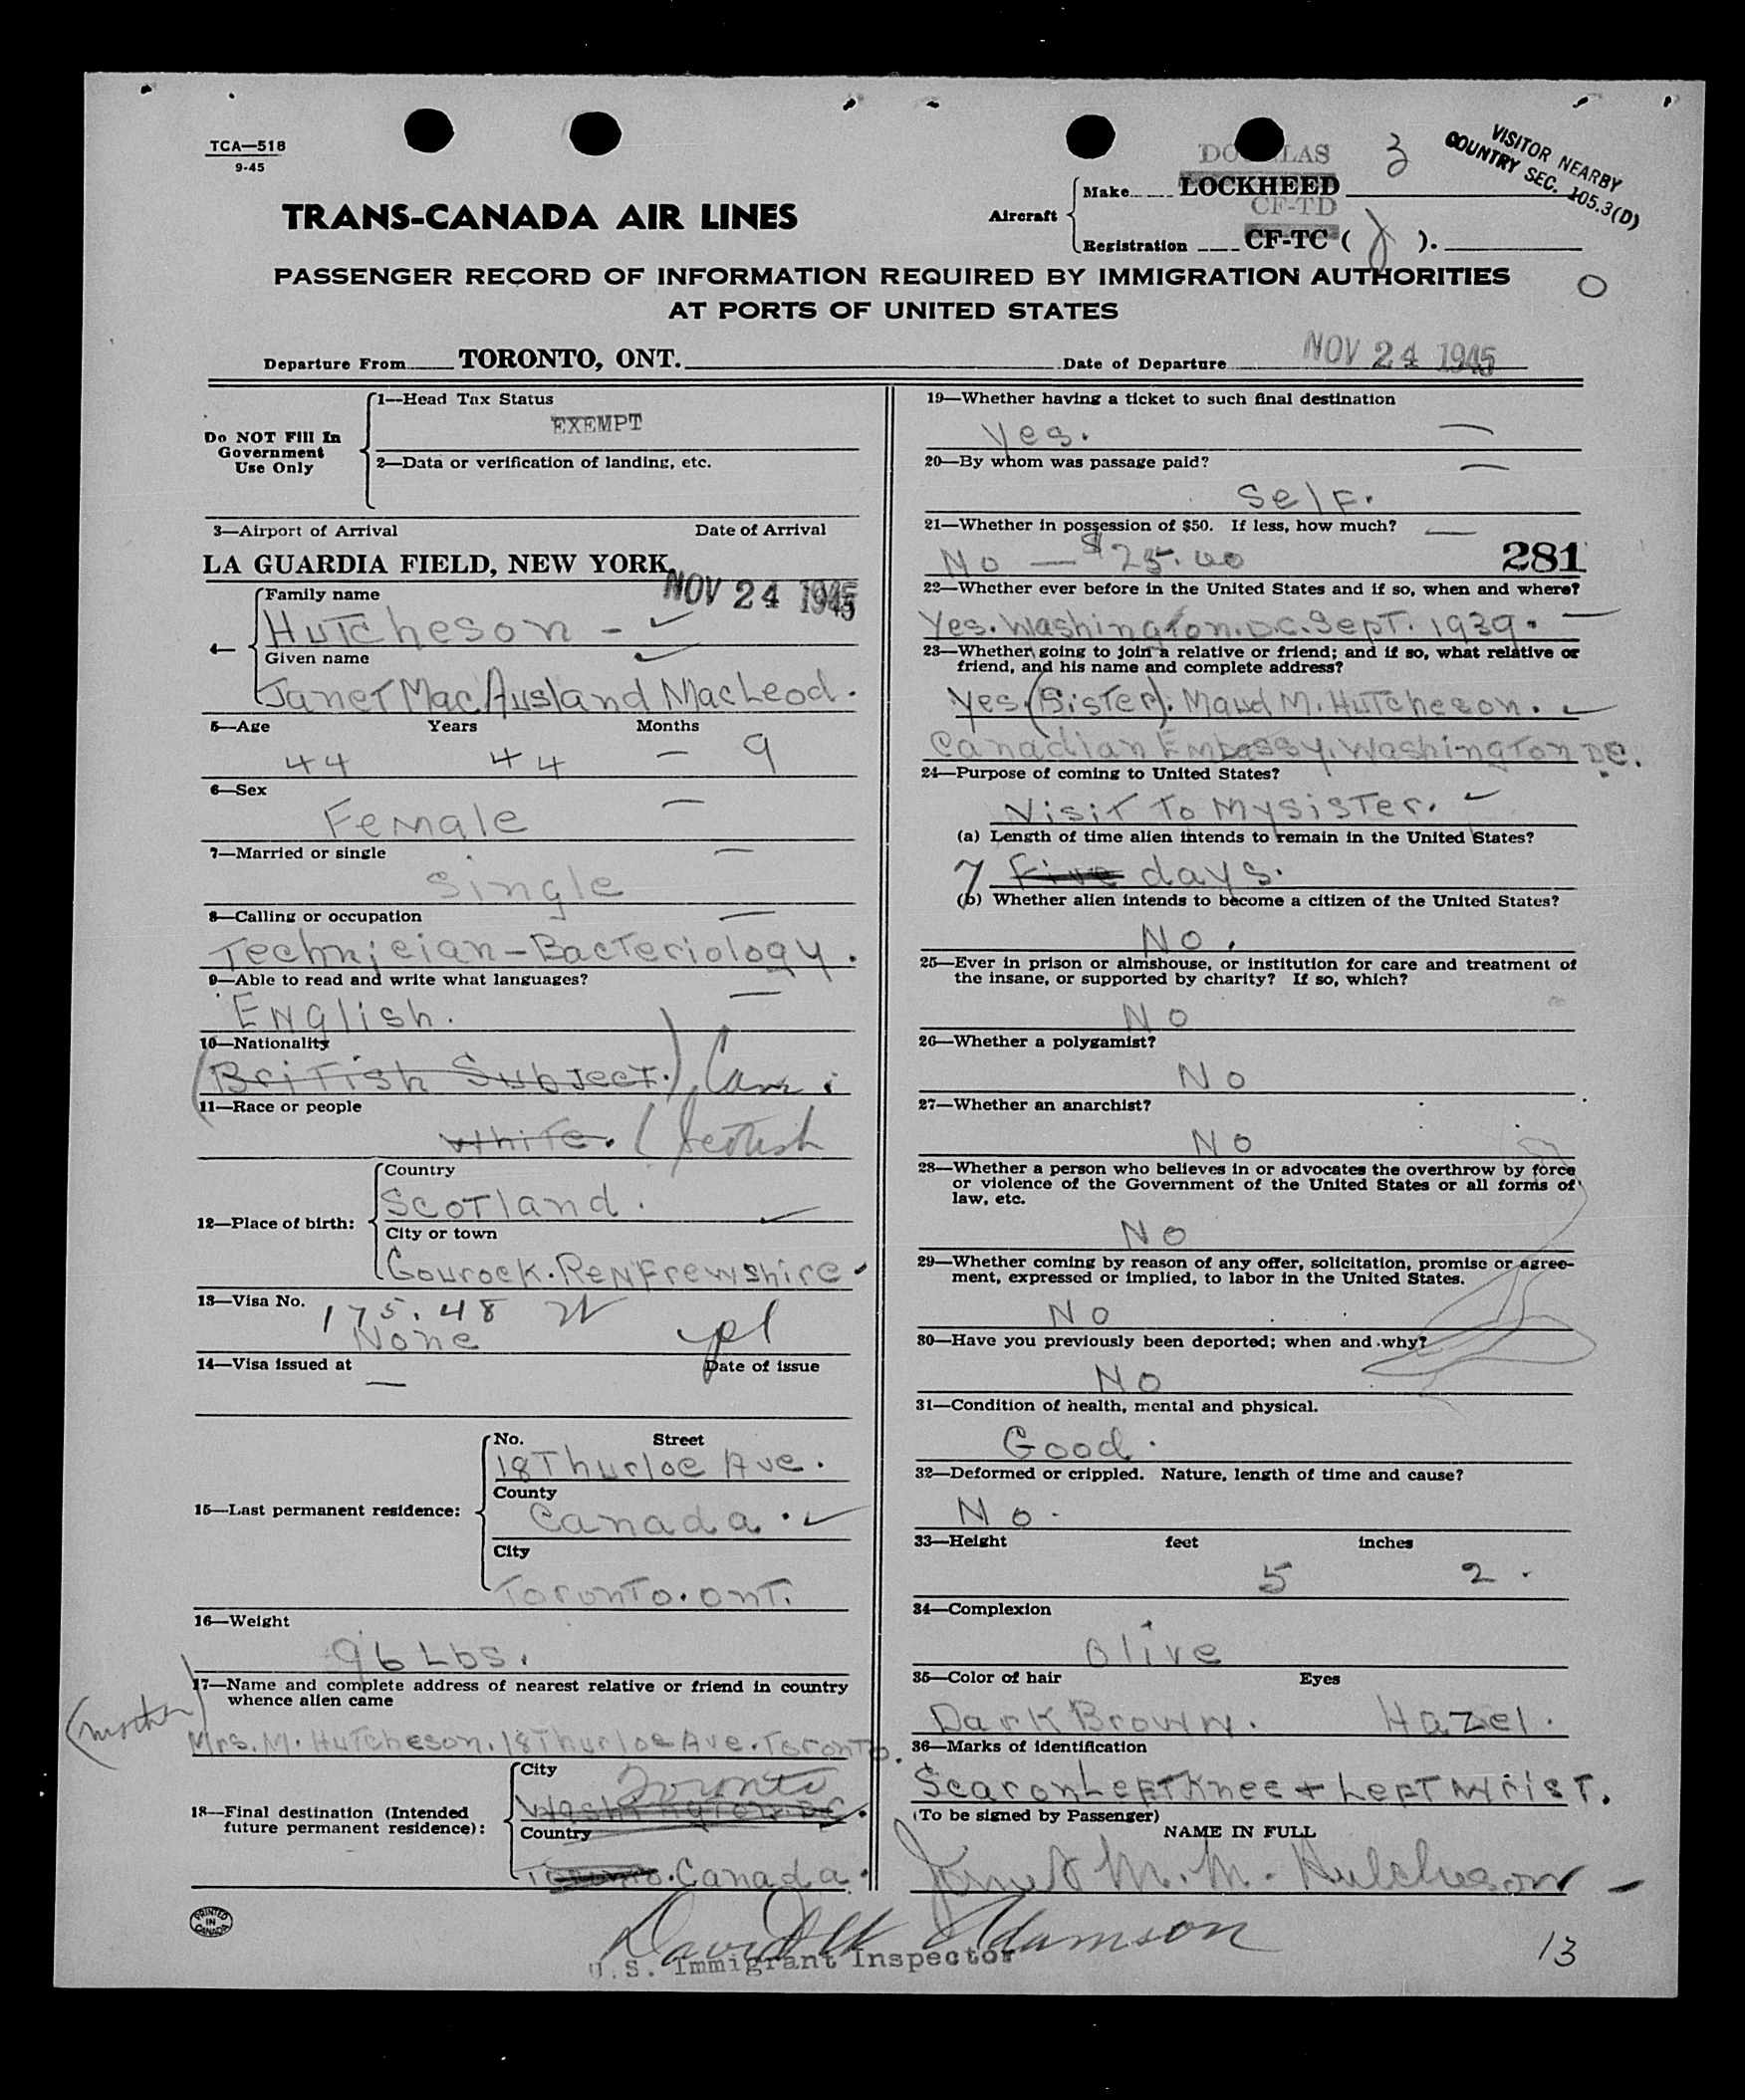 TCA—518
9-45
VISITOR NEARBY
COUNTRY SEC. 105.3(D)
DOUGLAS 3
Make LOCKHEED
TRANS-CANADA AIR LINES
Aircraft
CF-TD
Registration CF-TC ( ).
PASSENGER RECORD OF INFORMATION REQUIRED BY IMMIGRATION AUTHORITIES
AT PORTS OF UNITED STATES
O
Departure From TORONTO, ONT. Date of Departure NOV 24 1945
Do NOT Fill In
Government
Use Only
1—Head Tax Status
EXEMPT
2—Data or verification of landing, etc.
3—Airport of Arrival Date of Arrival
LA GUARDIA FIELD, NEW YORK NOV 24 1945
4—
Family name
Hutcheson -
Given name
Janet MacAusland MacLeod.
5—Age Years Months
44 44 — 9
6—Sex
Female
7—Married or single
Single
8—Calling or occupation
Technician-Bacteriology.
9—Able to read and write what languages?
English.
10—Nationality
(British Subject.)
11—Race or people
White. (Scottish
12—Place of birth:
Country
Scotland.
City or town
Gourock. Renfrewshire
13—Visa No. 175.48
None
14—Visa issued at Date of issue
—
15—Last permanent residence:
No. Street
18 Thurloe Ave.
County
Canada.
City
Toronto. Ont.
16—Weight
96 Lbs.
17—Name and complete address of nearest relative or friend in country
whence alien came
(mother)
Mrs. M. Hutcheson. 18 Thurloe Ave. Toronto.
18—Final destination (Intended
future permanent residence):
City
Toronto
Washington DC.
Country
Toronto. Canada.
PRINTED
IN
CANADA
19—Whether having a ticket to such final destination
Yes.
20—By whom was passage paid?
Self.
21—Whether in possession of $50. If less, how much?
No — $25.00 281
22—Whether ever before in the United States and if so, when and where?
Yes. Washington. D.C. Sept. 1939.
23—Whether going to join a relative or friend; and if so, what relative or
friend, and his name and complete address?
Yes. (Sister). Maud M. Hutcheson.
Canadian Embassy. Washington DC.
24—Purpose of coming to United States?
Visit to my sister.
(a) Length of time alien intends to remain in the United States?
7 five days.
(b) Whether alien intends to become a citizen of the United States?
No.
25—Ever in prison or almshouse, or institution for care and treatment of
the insane, or supported by charity? If so, which?
No
26—Whether a polygamist?
No
27—Whether an anarchist?
No
28—Whether a person who believes in or advocates the overthrow by force
or violence of the Government of the United States or all forms of
law, etc.
No
29—Whether coming by reason of any offer, solicitation, promise or agree-
ment, expressed or implied, to labor in the United States.
No
30—Have you previously been deported; when and why?
No
31—Condition of health, mental and physical.
Good.
32—Deformed or crippled. Nature, length of time and cause?
No.
33—Height feet inches
5 2.
34—Complexion
Olive
35—Color of hair Eyes
Dark Brown. Hazel.
36—Marks of identification
Scar on Left Knee + Left Wrist.
(To be signed by Passenger)
NAME IN FULL
Janet M. M. Hutcheson
David Adamson
U.S. Immigrant Inspector
13